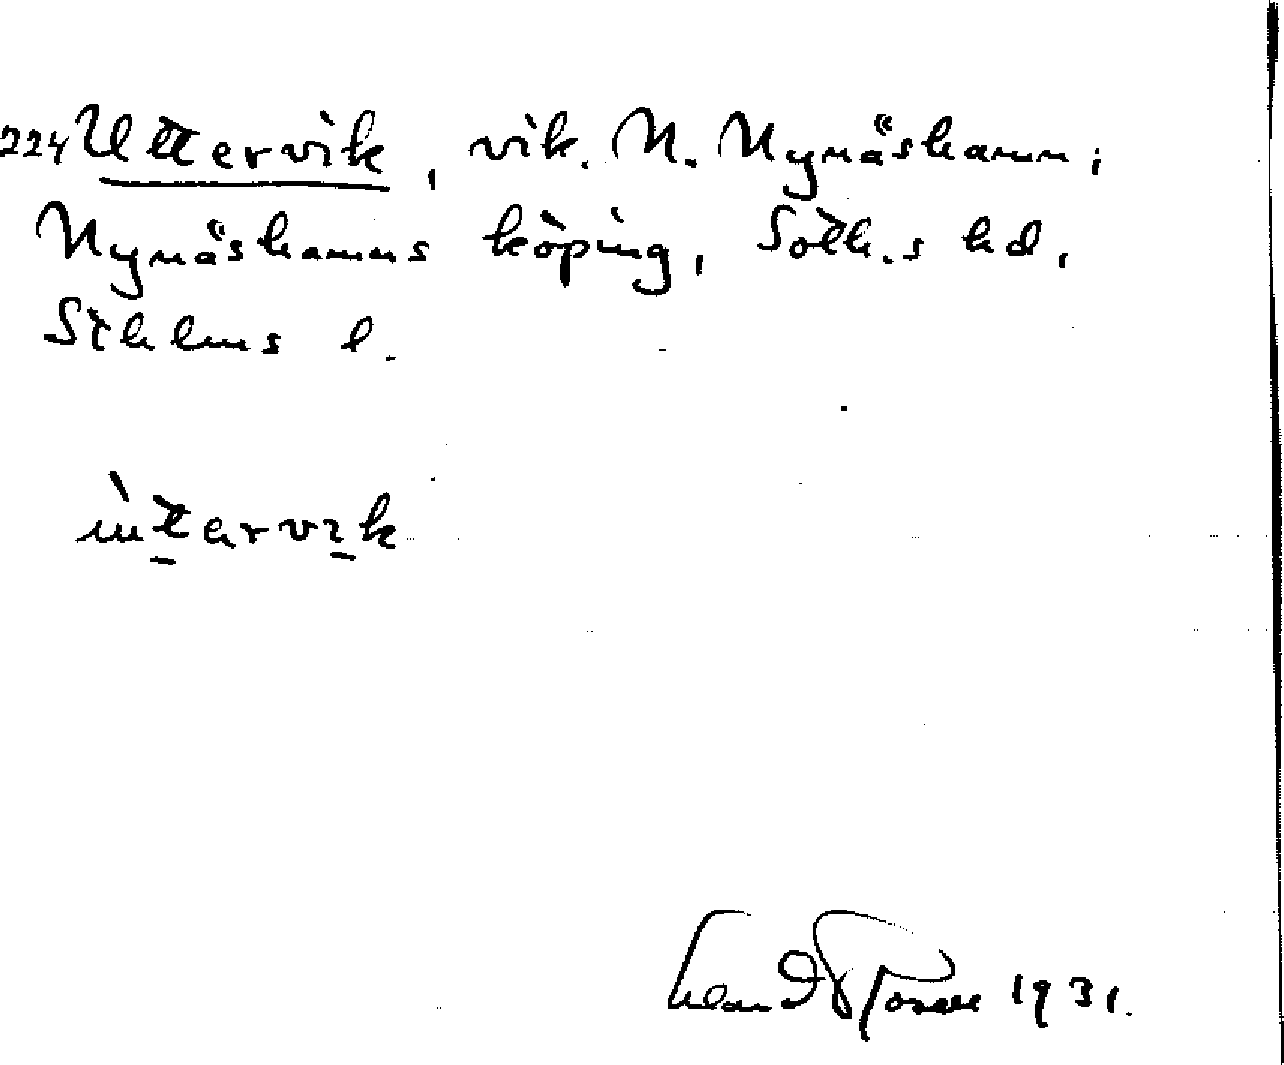 224 Uttervik, vik. N. Nynäshamn,
Nynäshamns köping, Soth.s hd,
Sthlms l.
ùtervik
1931.